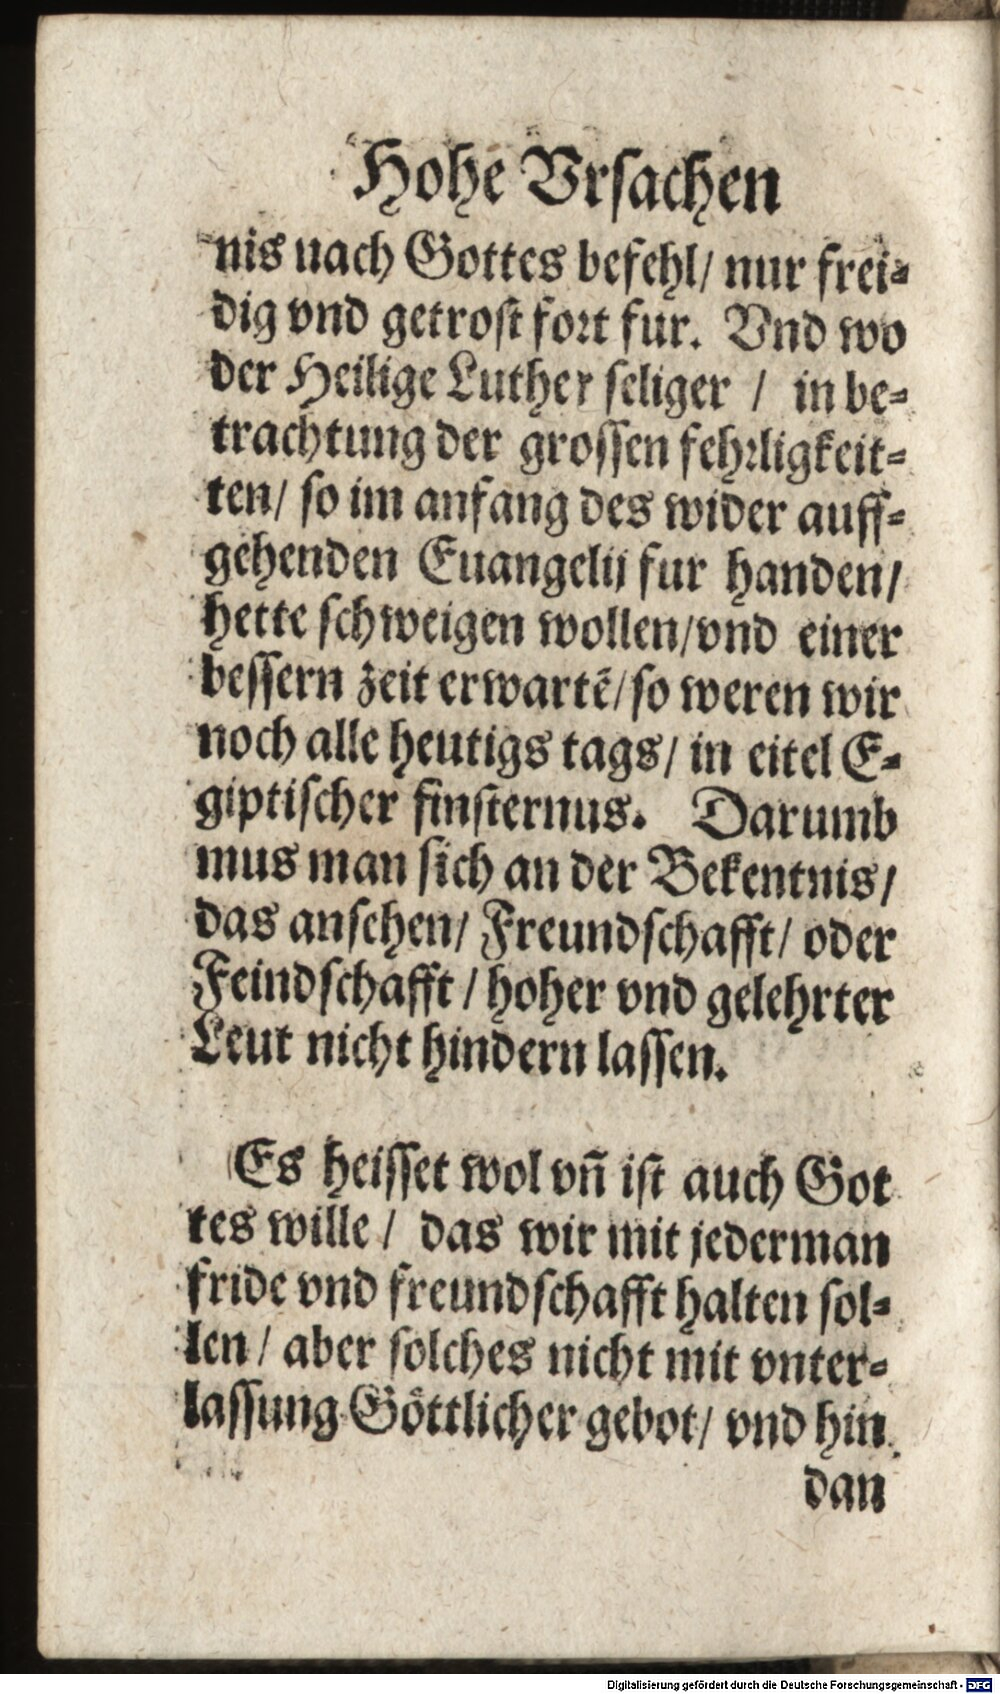 Hohe Vrsachen
nis nach Gottes befehl/ nur frei⸗
dig vnd getrost fort fur. Vnd wo
der Heilige Luther seliger / in be⸗
trachtung der grossen fehrligkeit⸗
ten/ so im anfang des wider auff⸗
gehenden Euangelij fur handen/
hette schweigen wollen/vnd einer
bessern zeit erwartē/so weren wir
noch alle heutigs tags/ in eitel E⸗
giptischer finsternus. Darumb
mus man sich an der Bekentnis/
das ansehen/ Freundschafft/ oder
Feindschafft / hoher vnd gelehrter
Leut nicht hindern lassen.
Es heisset wol vn̄ ist auch Got
tes wille / das wir mit jederman
fride vnd freundschafft halten sol⸗
len / aber solches nicht mit vnter⸗
lassung Göttlicher gebot/ vnd hin
dan
Digitalisierung gefördert durch die Deutsche Forschungsgemeinschaft - DFG